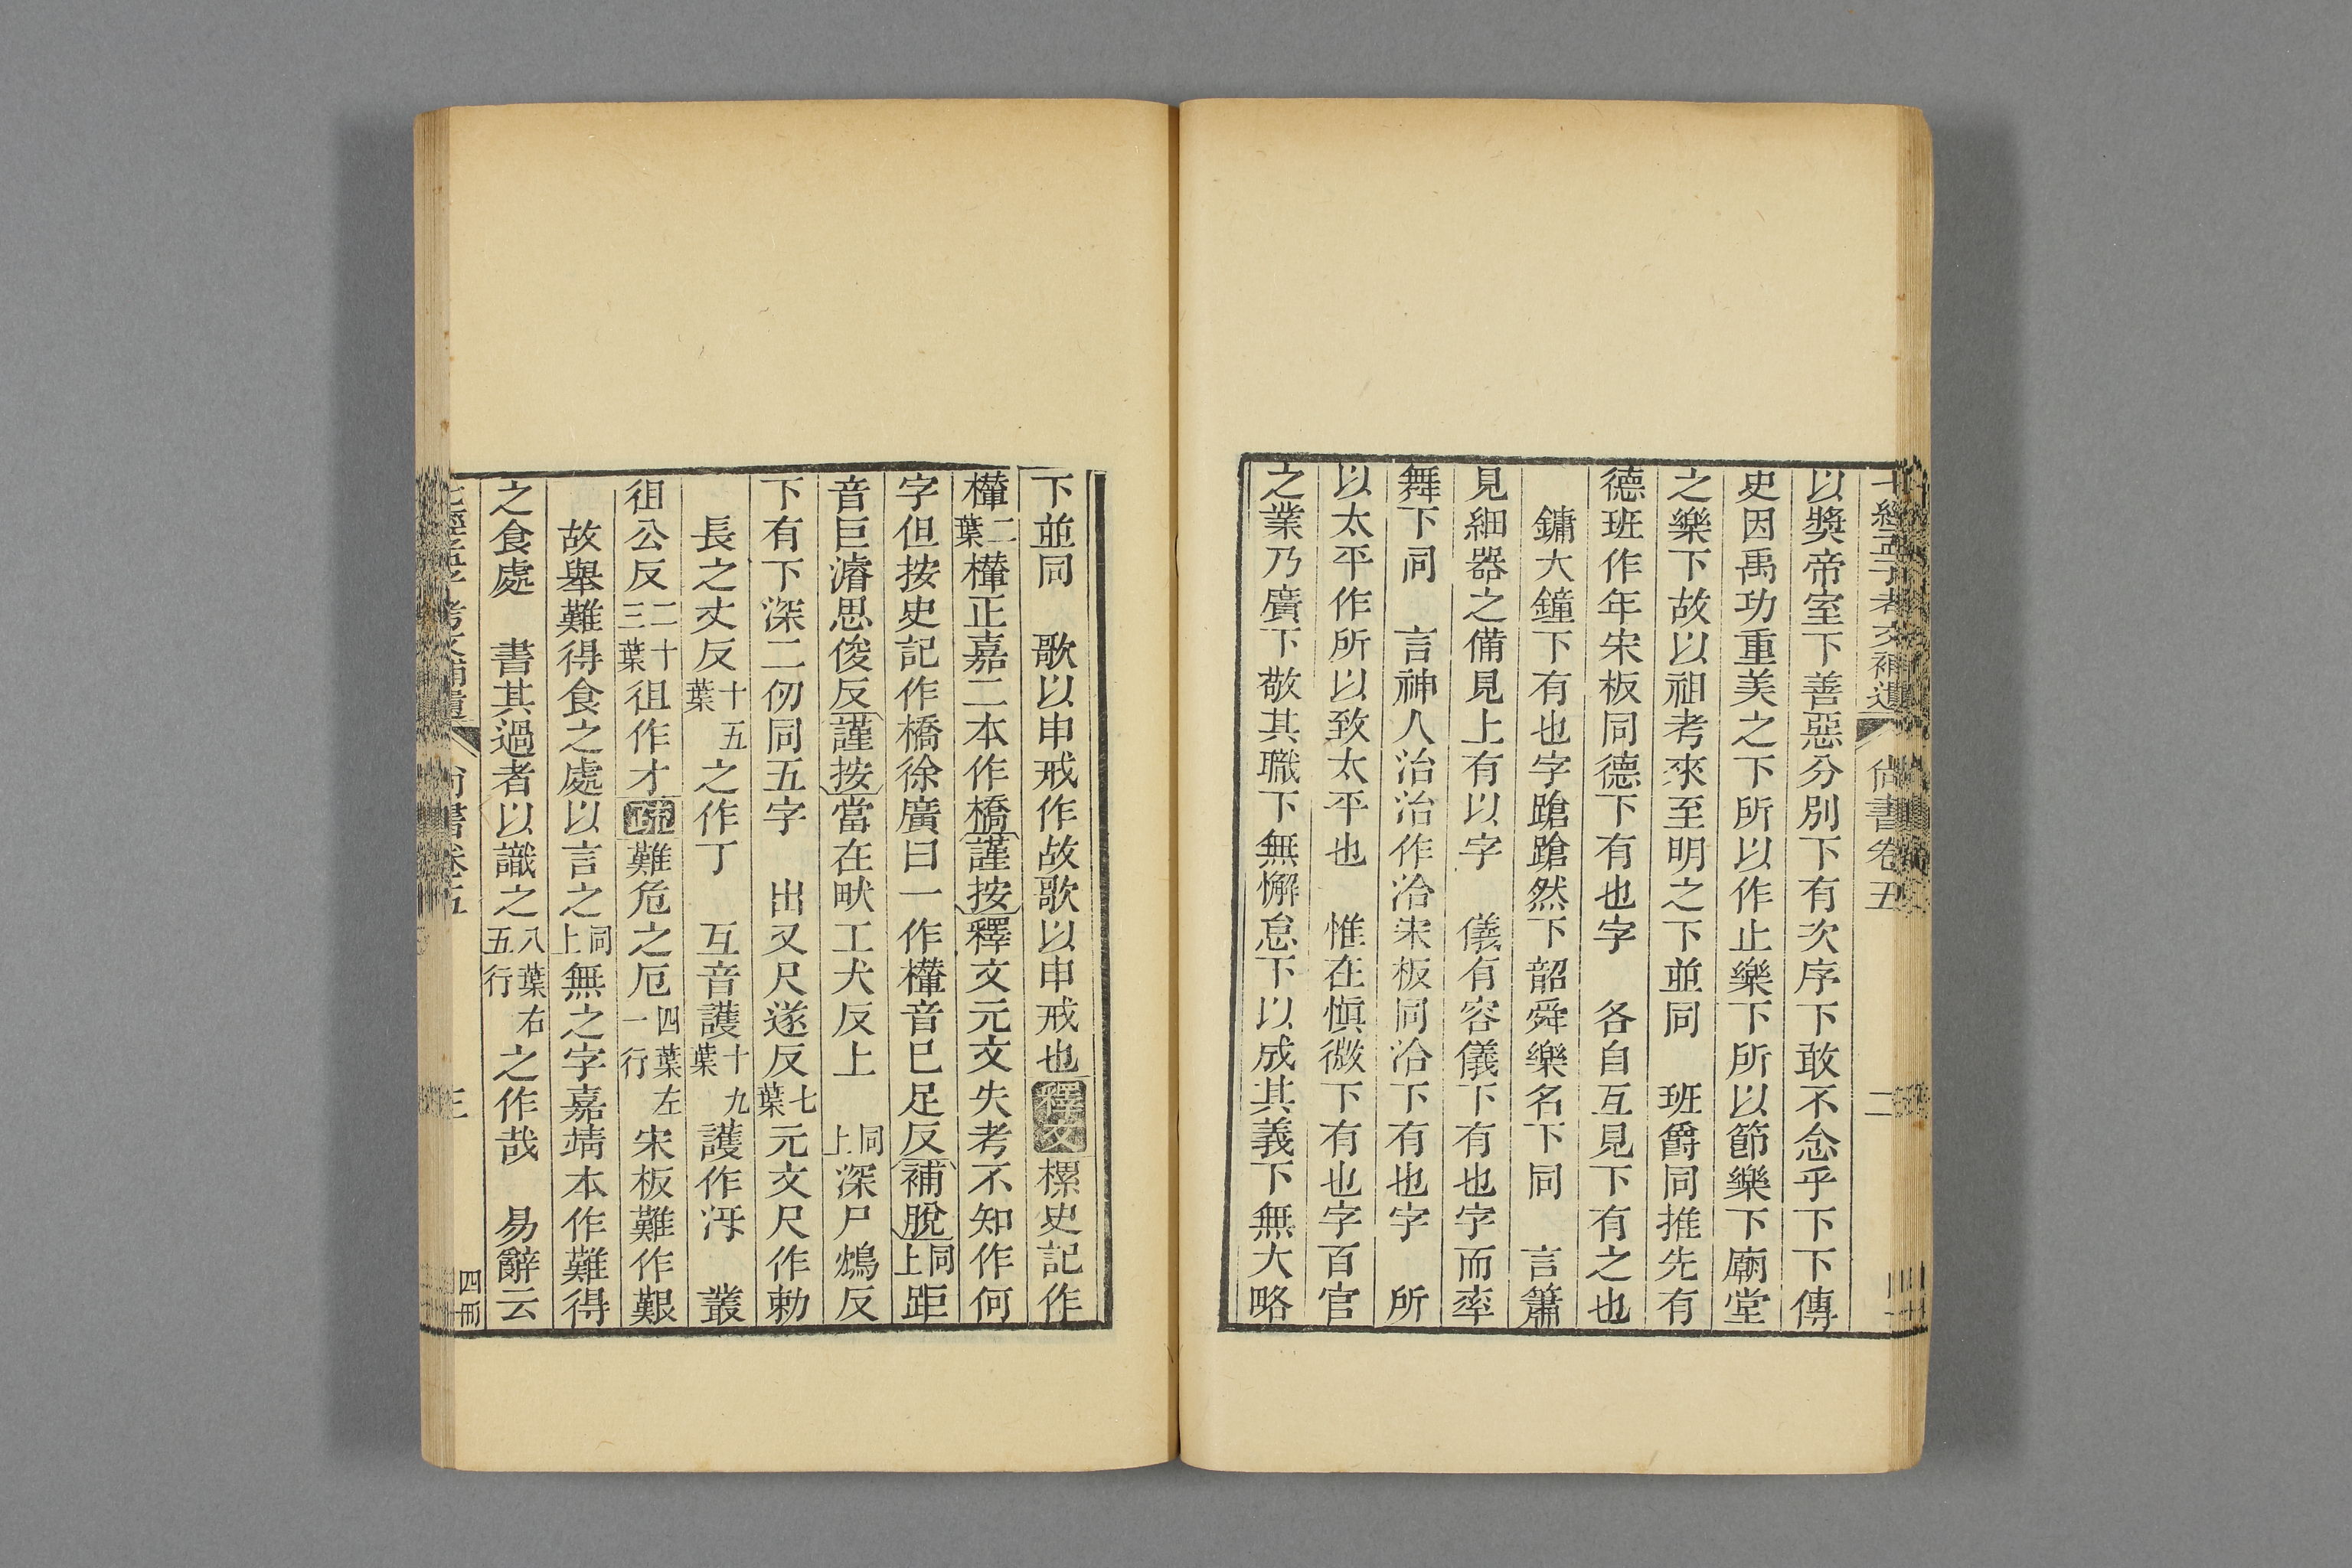 七經孟子考文補遺 尙書卷五 二
以獎帝室下善惡分別下有次序下敢不念乎下下傳
史因禹功重美之下所以作止樂下所以節樂下廟堂
之樂下故以祖考來至明之下並同　班爵同推先有
德班作年宋板同德下有也字　各自互見下有之也
鏞大鐘下有也字蹌蹌然下韶舜樂名下同　言簫
見細器之備見上有以字　儀有容儀下有也字而率
舞下同　言神人治治作洽宋板同洽下有也字　所
以太平作所以致太平也　惟在愼微下有也字百官
之業乃廣下敬其職下無懈怠下以成其義下無大略
下並同　歌以申戒作故歌以申戒也釋文樏史記作
欙二葉欙正嘉二本作橋謹按釋文元文失考不知作何
字但按史記作橋徐廣曰一作欙音巳足反補脫同上距
音巨濬思俊反謹按當在畎工犬反上　同上深尸鴆反
下有下深二仞同五字　出又尺遂反七葉元文尺作勅
長之丈反十五葉之作丁　互音護十九葉護作冱　叢
徂公反二十三葉徂作才疏難危之厄四葉左一行宋板難作艱
故舉難得食之處以言之同上無之字嘉靖本作難得
之食處　書其過者以識之八葉右五行之作哉　易辭云
七經孟子考文補遺 尙書卷五 三 四冊